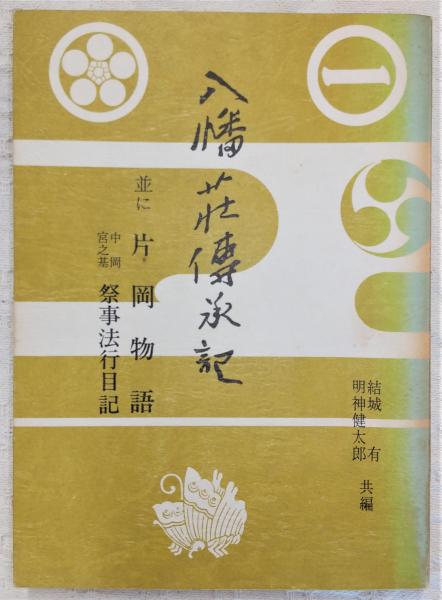 八幡荘傳承記
並に 片岡物語
中岡
宮之基
祭事法行目記
結城 有
明神健太郎
共編